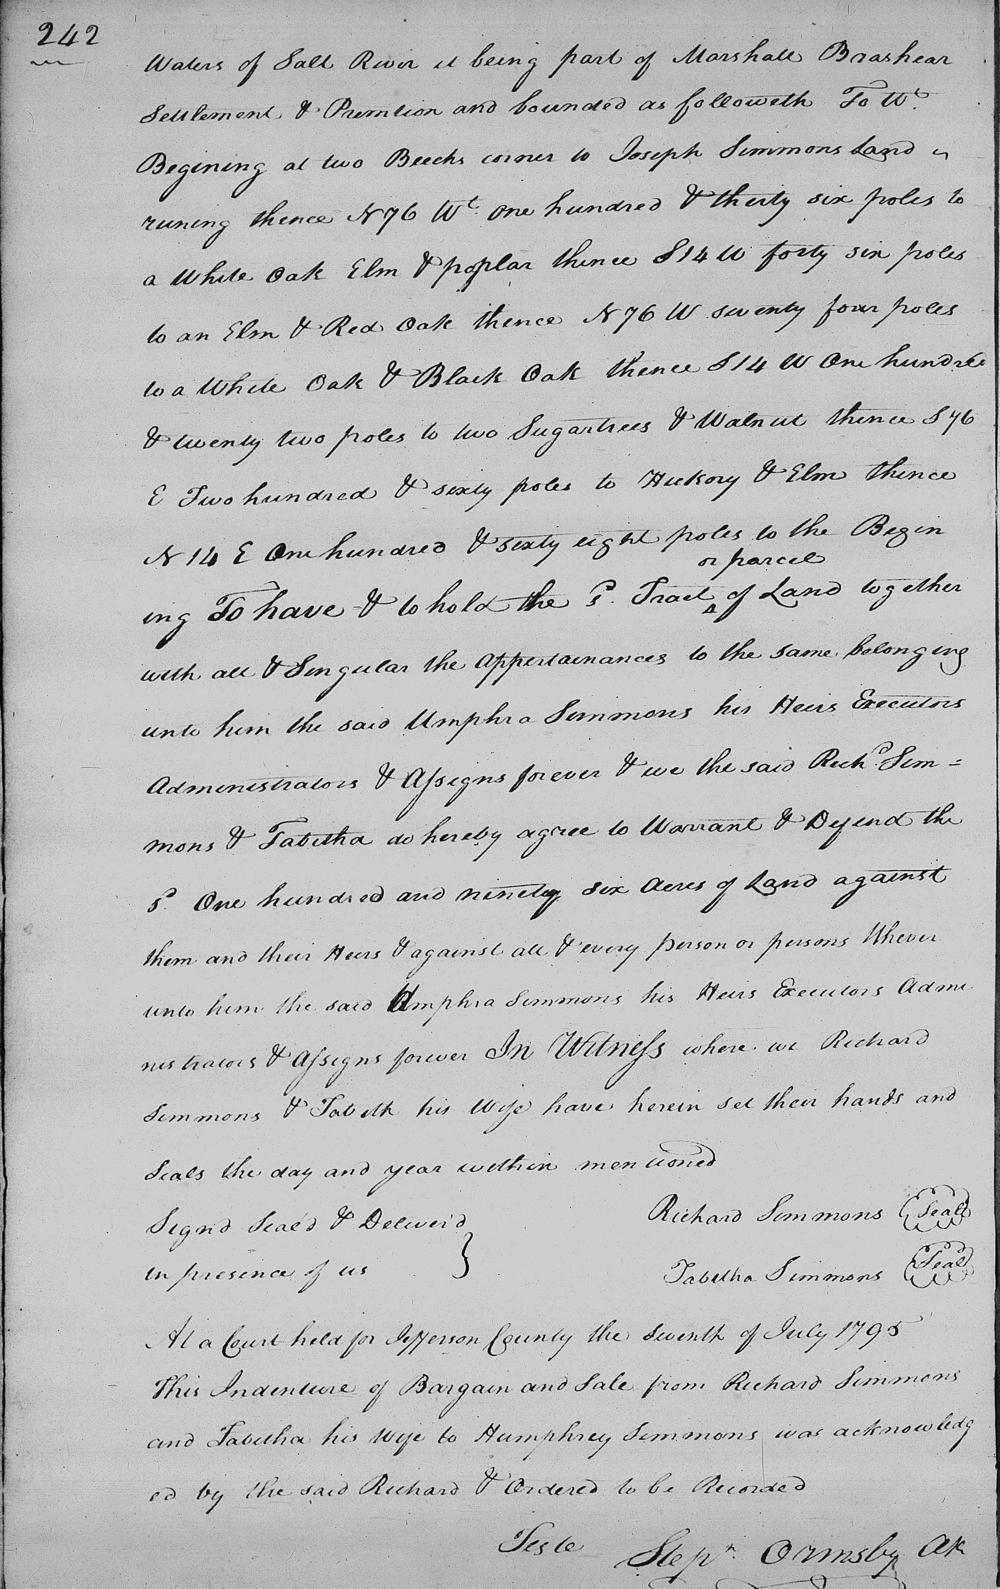 242
Waters of Salt River it being part of Marshall Brashear
Settlement & Premtion and bounded as followeth To Wt.
Begining at two Beechs corner to Joseph Simmons Land
runing thence N76 Wt. One hundred & thirty six poles to
a White Oak Elm & poplar thence S14 W forty six poles
to an Elm & Red Oak thence N76 W seventy four poles
to a White Oak & Black Oak thence S14 W One hundred
& twenty two poles to two Sugartrees & Walnut thence S76
E Two hundred & sixty poles to Hickory & Elm thence
N14 E One hundred & sixty eight poles to the Begin
or parcel
ing To have & to hold the Sd. Tract ^ of Land together
with all & Singular the Appertainances to the same belonging
unto him the said Umphra Simmons his Heirs Executors
Administrators & Assigns forever & we the said Richd. Sim=
mons & Tabitha do hereby agree to Warrant & Defend the
Sd. One hundred and ninety six Acres of Land against
them and their Heirs & against all & every person or persons Whever
unto him the said Umphra Simmons his Heirs Executors Admi
nistrators & Assigns forever In Witness where we Richard
Simmons & Tabith his Wife have herein set their hands and
Seals the day and year within mentioned
Signd Seald & Deliver'd
Richard Simmons Seal
in presence of us }
Tabitha Simmons Seal
At a Court held for Jefferson County the Seventh of July 1795
This Indenture of Bargain and Sale from Richard Simmons
and Tabitha his Wife to Humphrey Simmons was acknowledg
ed by the said Richard & Ordered to be Recorded
Teste Stepn. Ormsby Clk